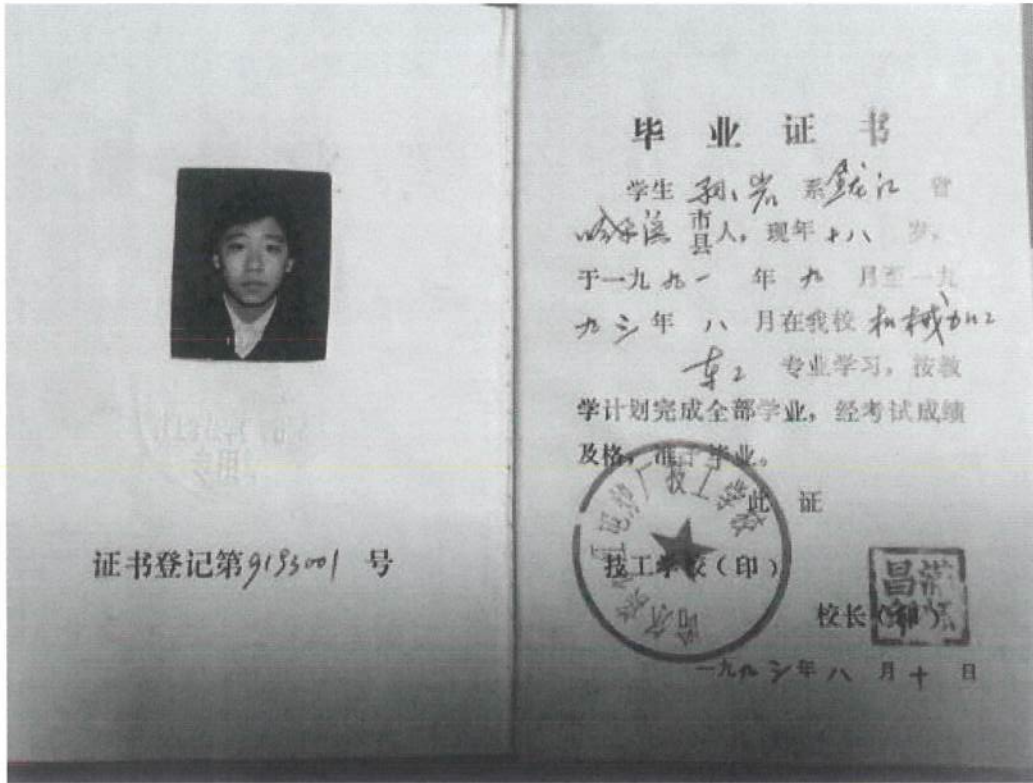 证书登记第9193001号
毕业证书
学生 孙岩 系 黑龙江 省
哈尔滨 市县人，现年十八 岁，
于一九九一 年 九 月至一九
九三年 八 月在我校 机械加工
车工 专业学习，按教
学计划完成全部学业，经考试成绩
及格，准予毕业。
此证
技工学校（印）
校长（印）
一九九三年八月十日